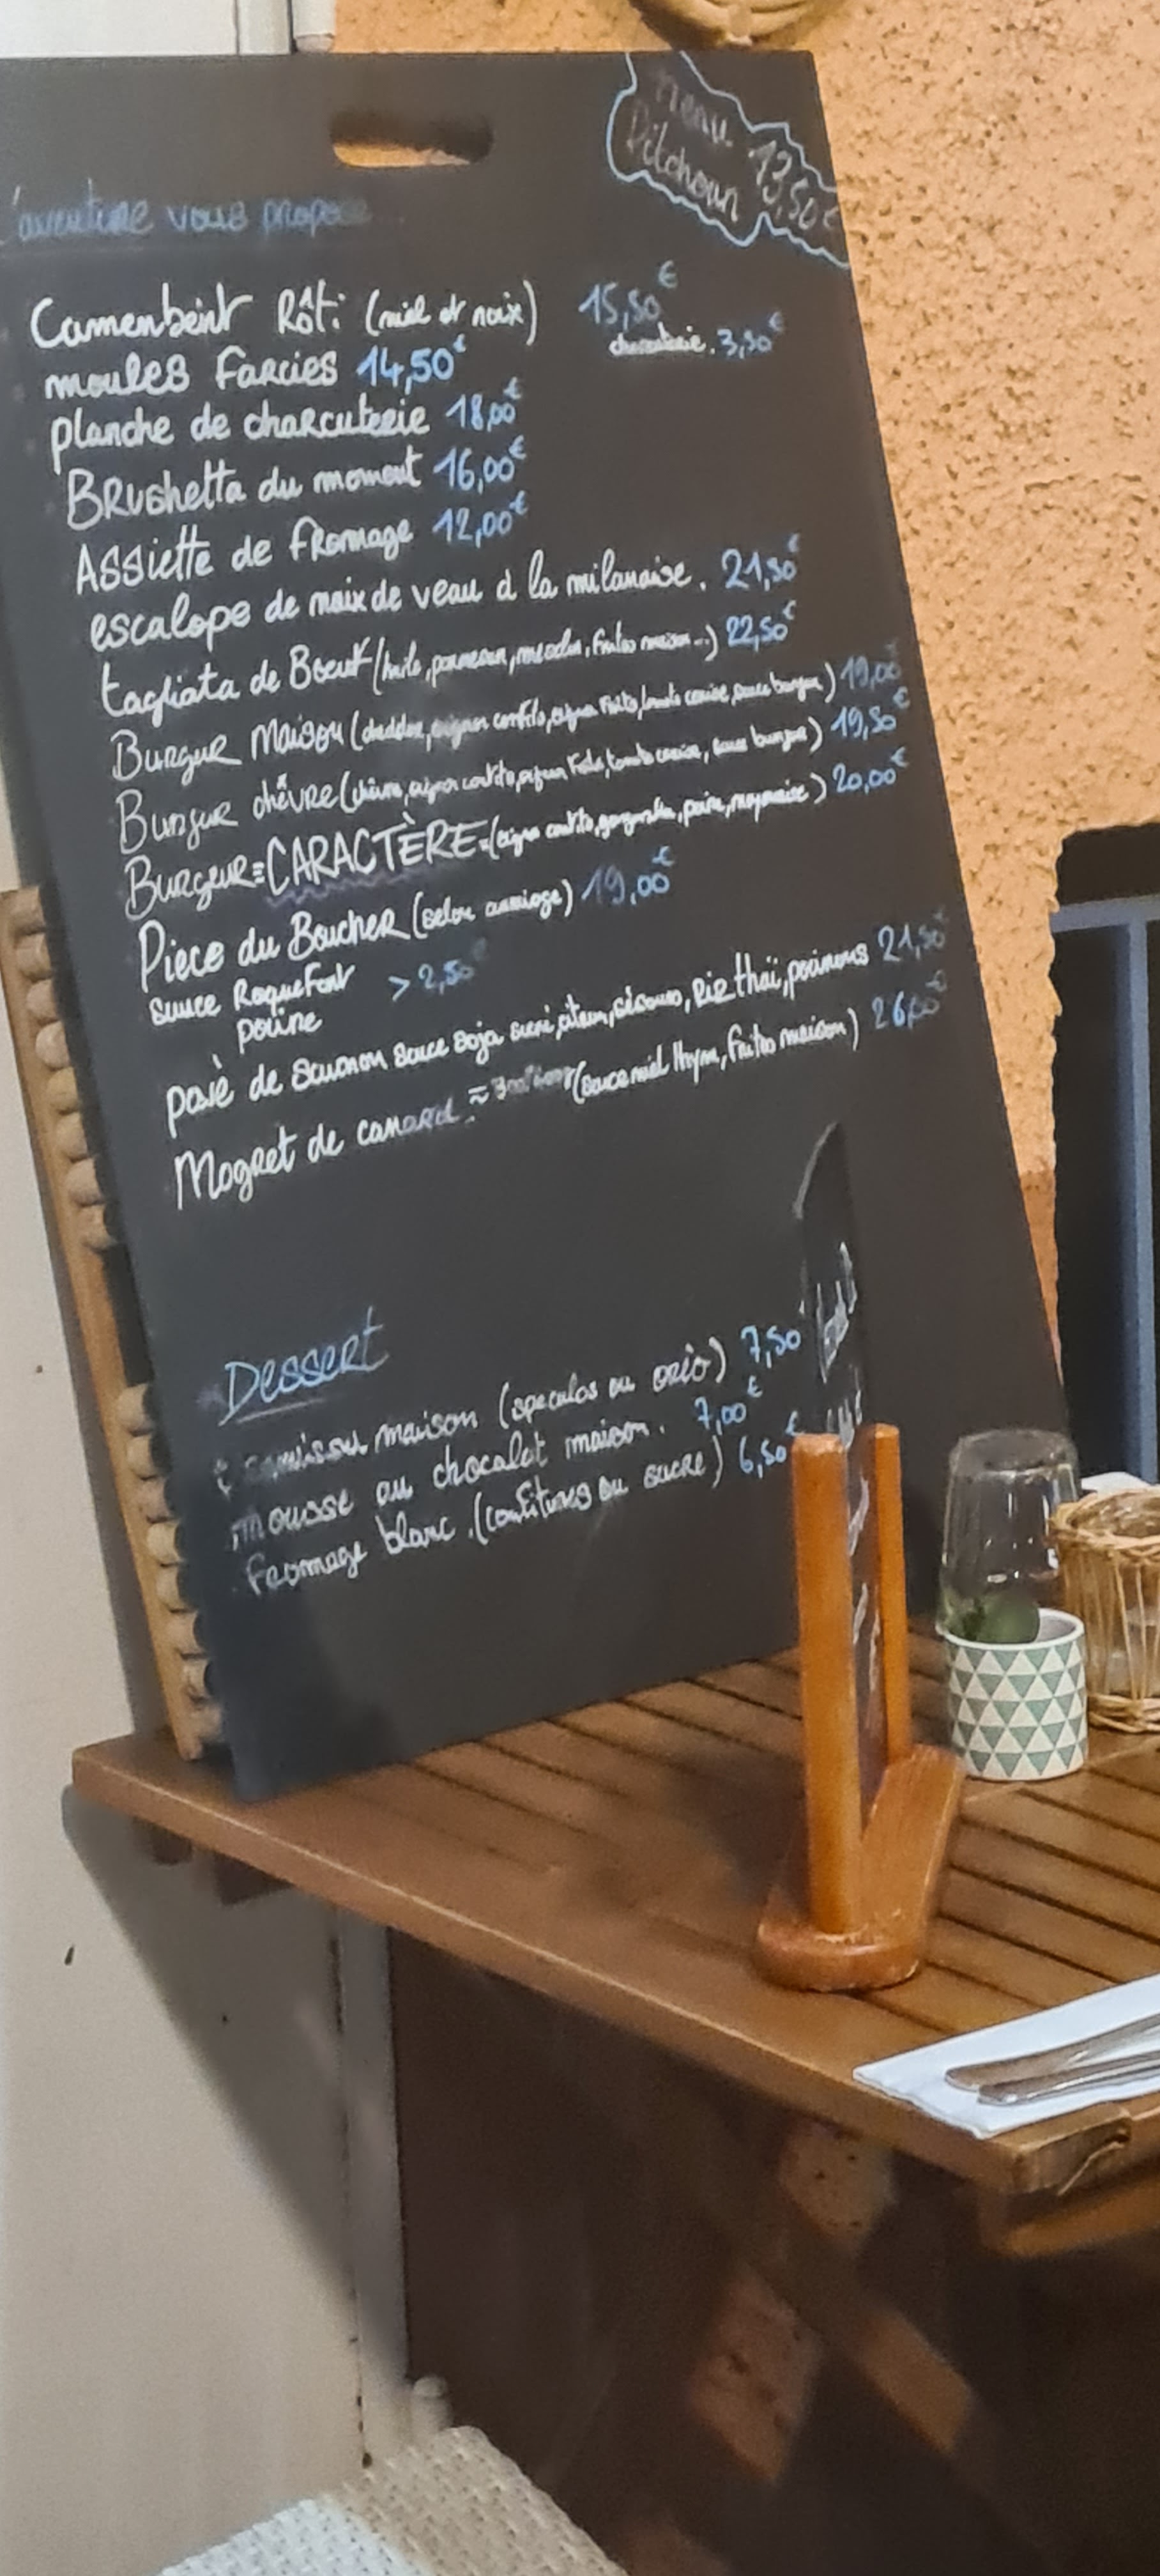 menu
Pitchoun 13,50€
l'aventure vous propose
Camenbeint Rôti (miel et noix) 15,50€
charcuterie. 3,50€
moules Farcies 14,50€
planche de charcuterie 18,00€
BRushetta du moment 16,00€
ASSiette de fromage 12,00€
escalope de noix de veau à la milanaise. 21,50€
tagliata de Boeuf (huile, parmesan, mesclun, frites maison...) 22,50€
Burgur Maison (cheddar, oignon confits, oignon frits, tomate cerise, sauce burgur) 19,00€
Burgur chèvre (chèvre, oignon confits, oignon frits, tomate cerise, sauce burgur) 19,50€
Burgeur CARACTÈRE (oignon confits, gorgonzola, poire, mayonnaise) 20,00€
Piece du Boucher (selon arrivage) 19,00€
sauce Roquefort > 2,50€
poivre
pavé de saumon sauce soja sucré, citron, sésames, Riz thaï, poivrons 21,50€
Magret de canard. ≈ (sauce miel thym, frites maison) 26,00€
Dessert
maison (speculos ou oréo) 7,50
mousse au chocolat maison. 7,00€
fromage blanc. (confitures ou sucre) 6,50€